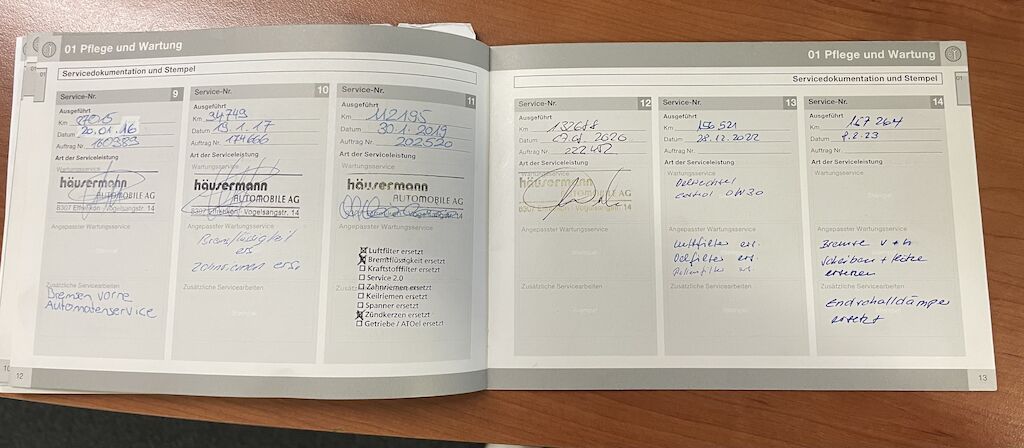 01 Pflege und Wartung
Servicedokumentation und Stempel
Service-Nr. 9
Ausgeführt
Km
Datum 20.01.16
Auftrag Nr. 160383
Art der Serviceleistung
Wartungsservice
häusermann
AUTOMOBILE AG
8307 Effretikon Vogelsangstr. 14
Angepasster Wartungsservice
Zusätzliche Servicearbeiten
Bremsen vorne
Automatenservice
12
Service-Nr. 10
Ausgeführt
Km 94749
Datum 19.1.17
Auftrag Nr. 174666
Art der Serviceleistung
Wartungsservice
häusermann
AUTOMOBILE AG
8307 Effretikon Vogelsangstr. 14
Angepasster Wartungsservice
Bremsflüssigkeit
ers.
Zahnriemen ers.
Zusätzliche Servicearbeiten
Service-Nr. 11
Ausgeführt
Km 112195
Datum 30.1.2019
Auftrag Nr. 202520
Art der Serviceleistung
Wartungsservice
häusermann
AUTOMOBILE AG
Angepasster Wartungsservice
Luftfilter ersetzt
Bremflüssigkeit ersetzt
Kraftstofffilter ersetzt
Service 2.0
Zahnriemen ersetzt
Keilriemen ersetzt
Spanner ersetzt
Zündkerzen ersetzt
Getriebe / ATOel ersetzt
01 Pflege und Wartung
Servicedokumentation und Stempel
Service-Nr. 12
Ausgeführt
Km 132688
Datum 2020
Auftrag Nr. 222452
Art der Serviceleistung
Wartungsservice
häusermann
AUTOMOBILE AG
Vogelsangstr. 14
Angepasster Wartungsservice
Zusätzliche Servicearbeiten
Service-Nr. 13
Ausgeführt
Km 156521
Datum 28.12.2022
Auftrag Nr.
Art der Serviceleistung
Wartungsservice
Oelwechsel
0W30
Angepasster Wartungsservice
Luftfilter ers.
Oelfilter ers.
Pollenfilter ers.
Zusätzliche Servicearbeiten
Service-Nr. 14
Ausgeführt
Km 167264
Datum 8.2.23
Auftrag Nr.
Art der Serviceleistung
Wartungsservice
Angepasster Wartungsservice
Bremse v + h
Scheiben + Klötze
ersetzen
Zusätzliche Servicearbeiten
Endschalldämpfer
ersetzt
13